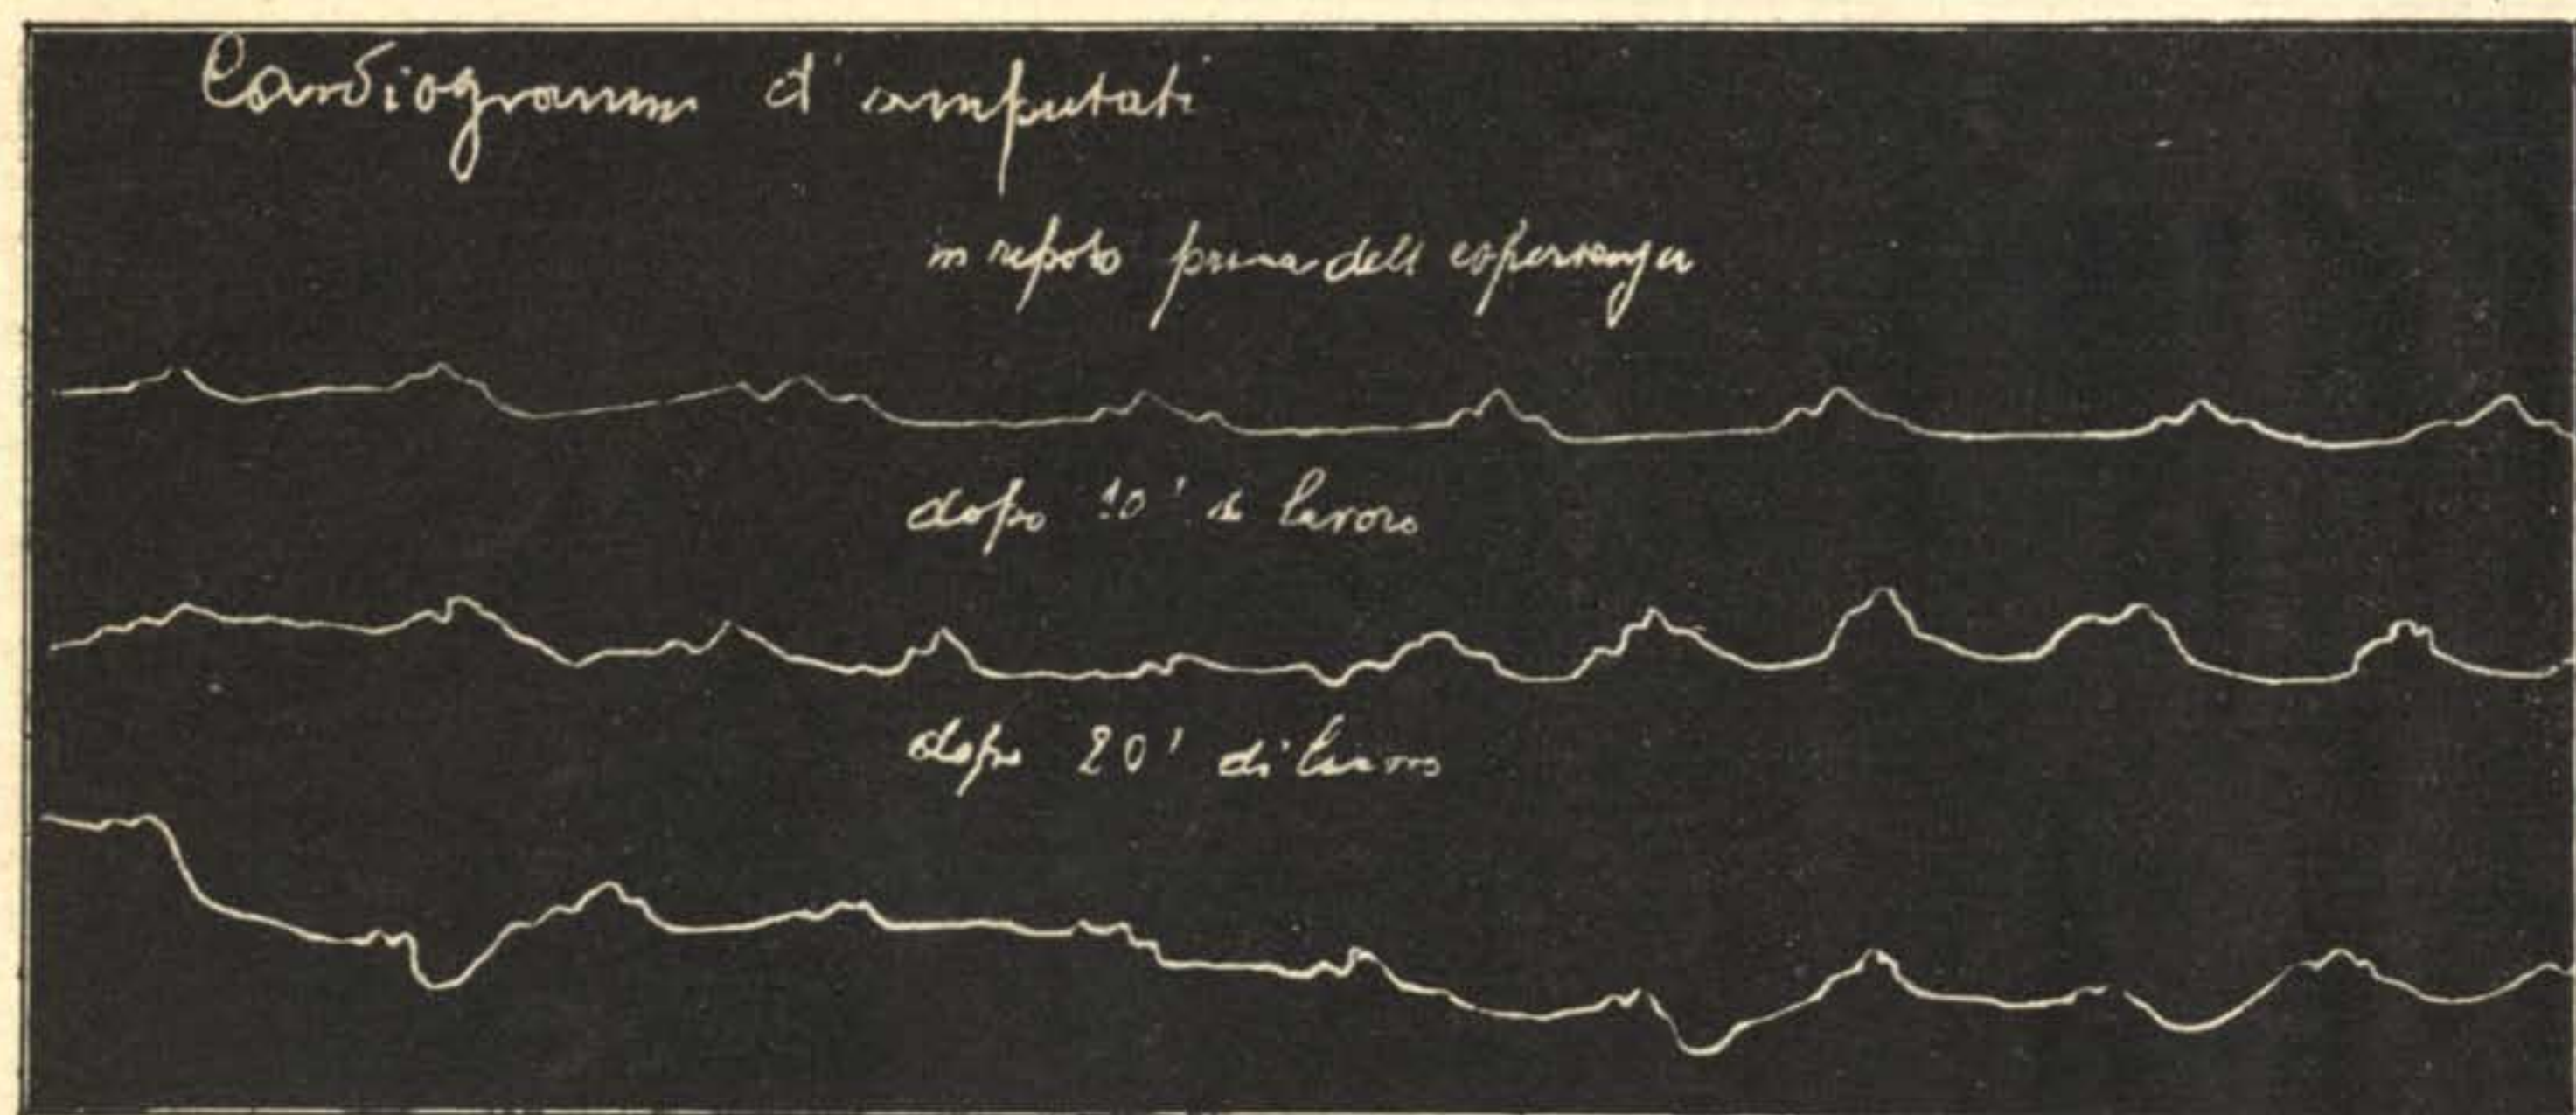 Cardiogrammi d'amputati
in riposo prima dell'esperienza
dopo 10' di lavoro
dopo 20' di lavoro